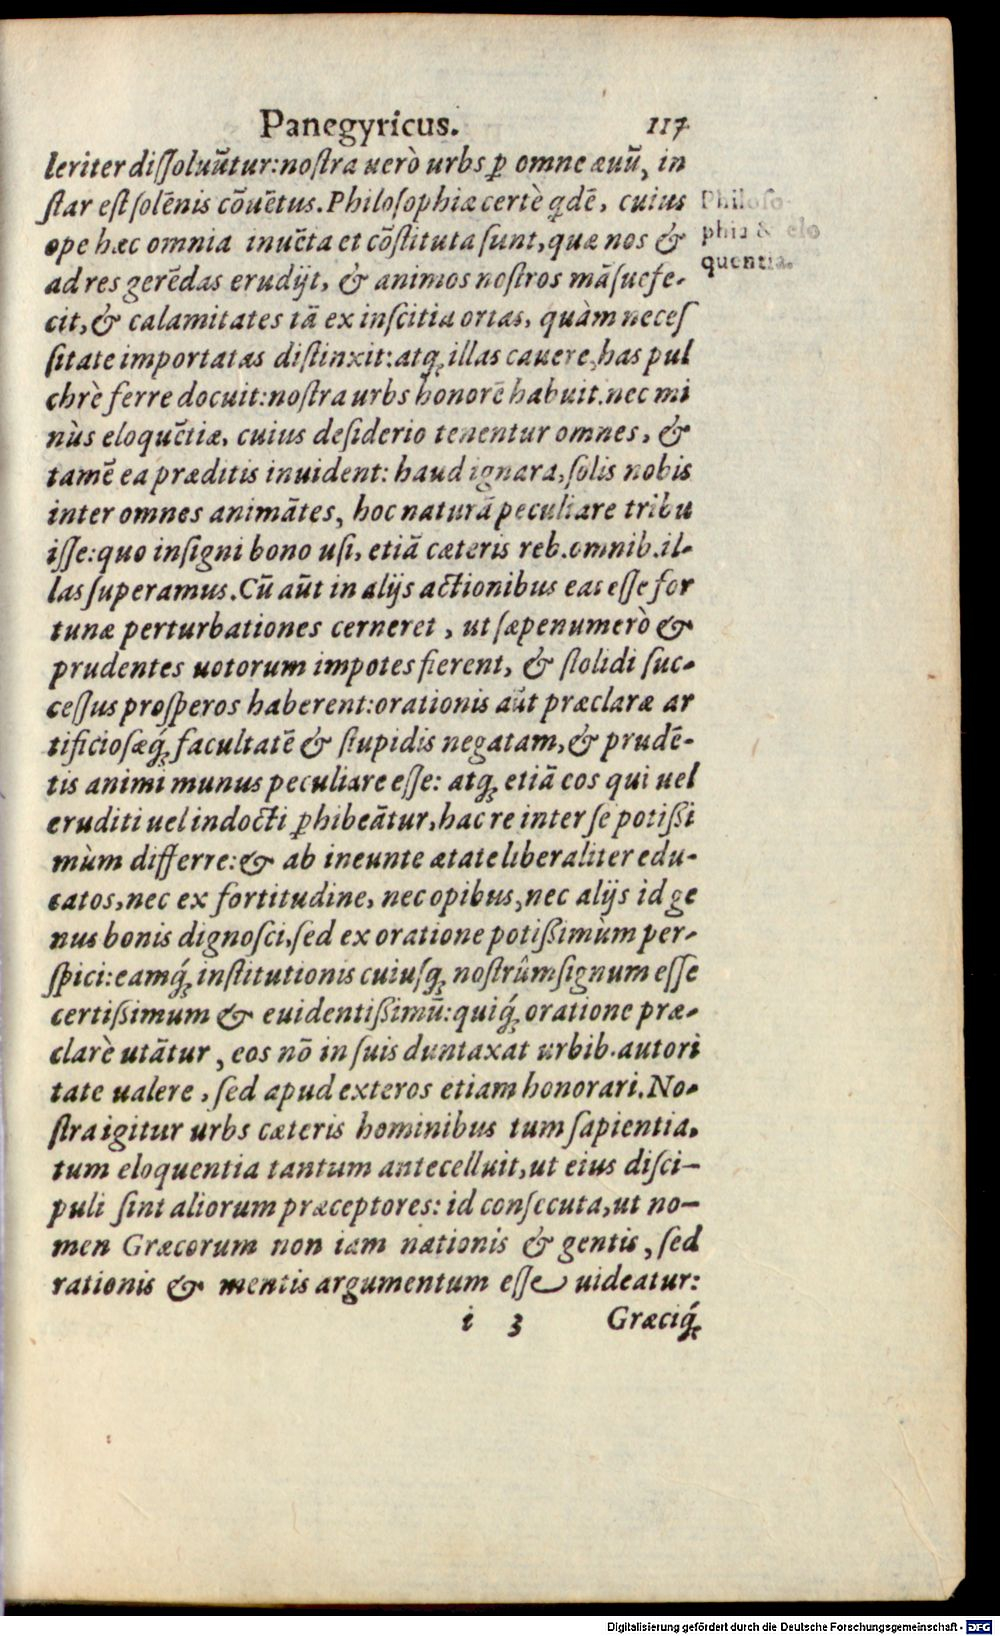 Panegyricus. 117
leriter diſſoluũtur: noſtra uerò urbs ꝑ omne æuũ, in
ſtar eſt ſolẽnis cõuẽtus. Philoſophiæ certè qdẽ, cuius
ope hæc omnia inuẽta et cõſtituta ſunt, quæ nos &
ad res gerẽdas erudijt, & animos noſtros mãſuefe-
cit, & calamitates tã ex inſcitia ortas, quàm neceſ
ſitate importatas diſtinxit: atq; illas cauere, has pul
chrè ferre docuit: noſtra urbs honorẽ habuit. nec mi
nùs eloquẽtiæ, cuius deſiderio tenentur omnes, &
tamẽ ea præditis inuident: haud ignara, ſolis nobis
inter omnes animãtes, hoc naturã peculiare tribu
iſſe: quo inſigni bono uſi, etiã cæteris reb. omnib. il-
las ſuperamus. Cũ aũt in alijs actionibus eas eſſe for
tunæ perturbationes cerneret, ut ſæpenumerò &
prudentes uotorum impotes fierent, & ſtolidi ſuc-
ceſſus proſperos haberent: orationis aũt præclaræ ar
tificioſæq́; facultatẽ & ſtupidis negatam, & prudẽ-
tis animi munus peculiare eſſe: atq; etiã eos qui uel
eruditi uel indocti ꝑhibeãtur, hac re inter ſe potißi
mùm differre: & ab ineunte ætate liberaliter edu-
catos, nec ex fortitudine, nec opibus, nec alijs id ge
nus bonis dignoſci, ſed ex oratione potißimùm per-
ſpici: eamq́; inſtitutionis cuiuſq; noſtrûm ſignum eſſe
certißimum & euidentißimũ: quiq́; oratione præ-
clarè utãtur, eos nõ in ſuis duntaxat urbib. autori
tate ualere, ſed apud exteros etiam honorari. No-
ſtra igitur urbs cæteris hominibus tum ſapientia,
tum eloquentia tantum antecelluit, ut eius diſci-
puli ſint aliorum præceptores: id conſecuta, ut no-
men Græcorum non iam nationis & gentis, ſed
rationis & mentis argumentum eſſe uideatur:
i 3 Græciq́;
Philoſo-
phia & elo
quentia.
Digitalisierung gefördert durch die Deutsche Forschungsgemeinschaft - DFG